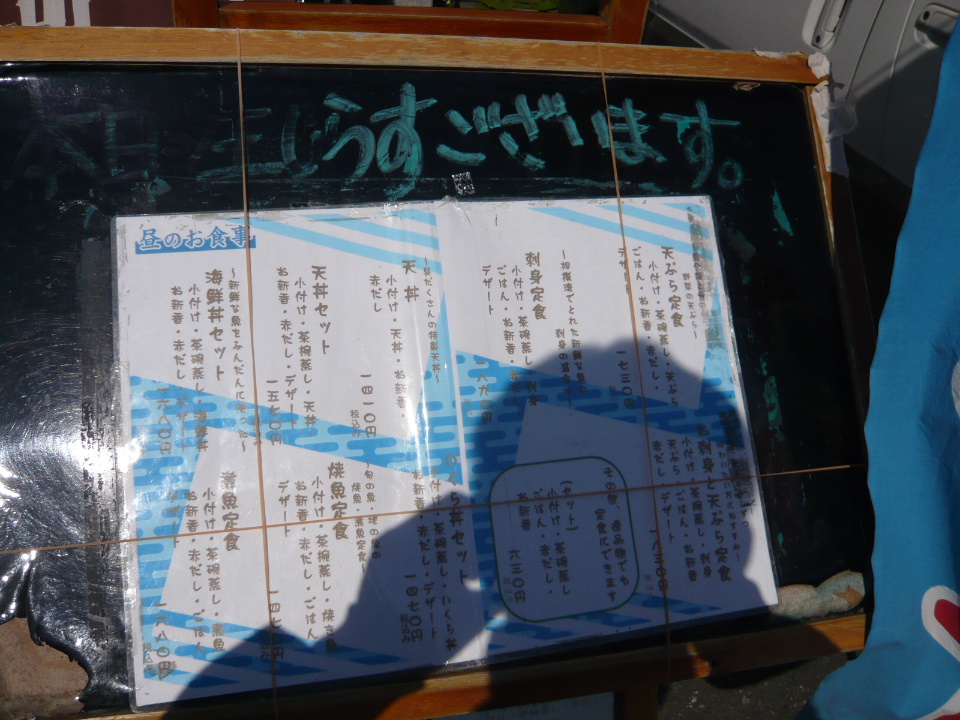 生じうすございます。
昼のお食事
野菜の天ぷら～
天ぷら定食
小付け・茶碗蒸し・天ぷら
ごはん・お新香・赤だし
デザート
一七三〇円
～相模湾でとれた新鮮な魚
刺身定食
小付け・茶碗蒸し・刺身
ごはん・お新香・赤だし
デザート
～具だくさんの特製天丼～
天丼
小付け・天丼・お新香・
赤だし
一四一〇円
税込み
天丼セット
小付け・茶碗蒸し・天丼
お新香・赤だし・デザート
一五七〇円
～新鮮な魚をふんだんに
海鮮丼セット
小付け・茶碗蒸し・海鮮丼
お新香・赤だし
お刺身と天ぷら定食
小付け・茶碗蒸し・刺身
天ぷら・ごはん・お新香
赤だし・デザート
その他、単品物でも
定食にできます
(セット)
小付け・茶碗蒸し
ごはん・赤だし・
お新香
六三〇円
いくら丼セット
小付け・茶碗蒸し・いくら丼
お新香・赤だし・デザート
一四七〇円
税込み
焼魚・煮魚定食
焼魚定食
小付け・茶碗蒸し・焼き魚
お新香・赤だし・ごはん
デザート
煮魚定食
小付け・茶碗蒸し・煮魚
お新香・赤だし・ごはん
デザート
一六八〇円
税込み